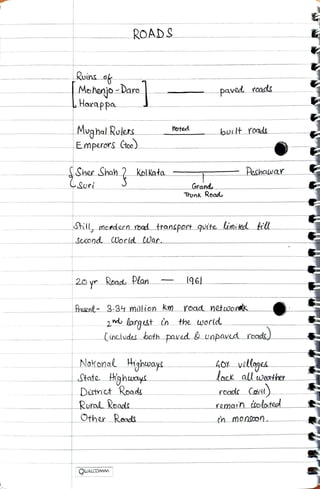 ROADS
Ruins of
Mohenjo-Daro
Harappa
paved roads
Mughal Rulers
Noted
built roads
Emperors (too)
Sher Shah
Suri
Kolkata
Peshawar
Grand
Trunk Road
Still, mordern road transport quite limited till
second World War.
20 yr Road Plan — 1961
Present- 3.34 million km road network
2nd largest in the world
(includes both paved & unpaved roads)
National Highways
State Highways
District Roads
Rural Roads
Other Roads
40% villages
lack all weather
roads
remain isolated
in monsoon.
QUALCOMM